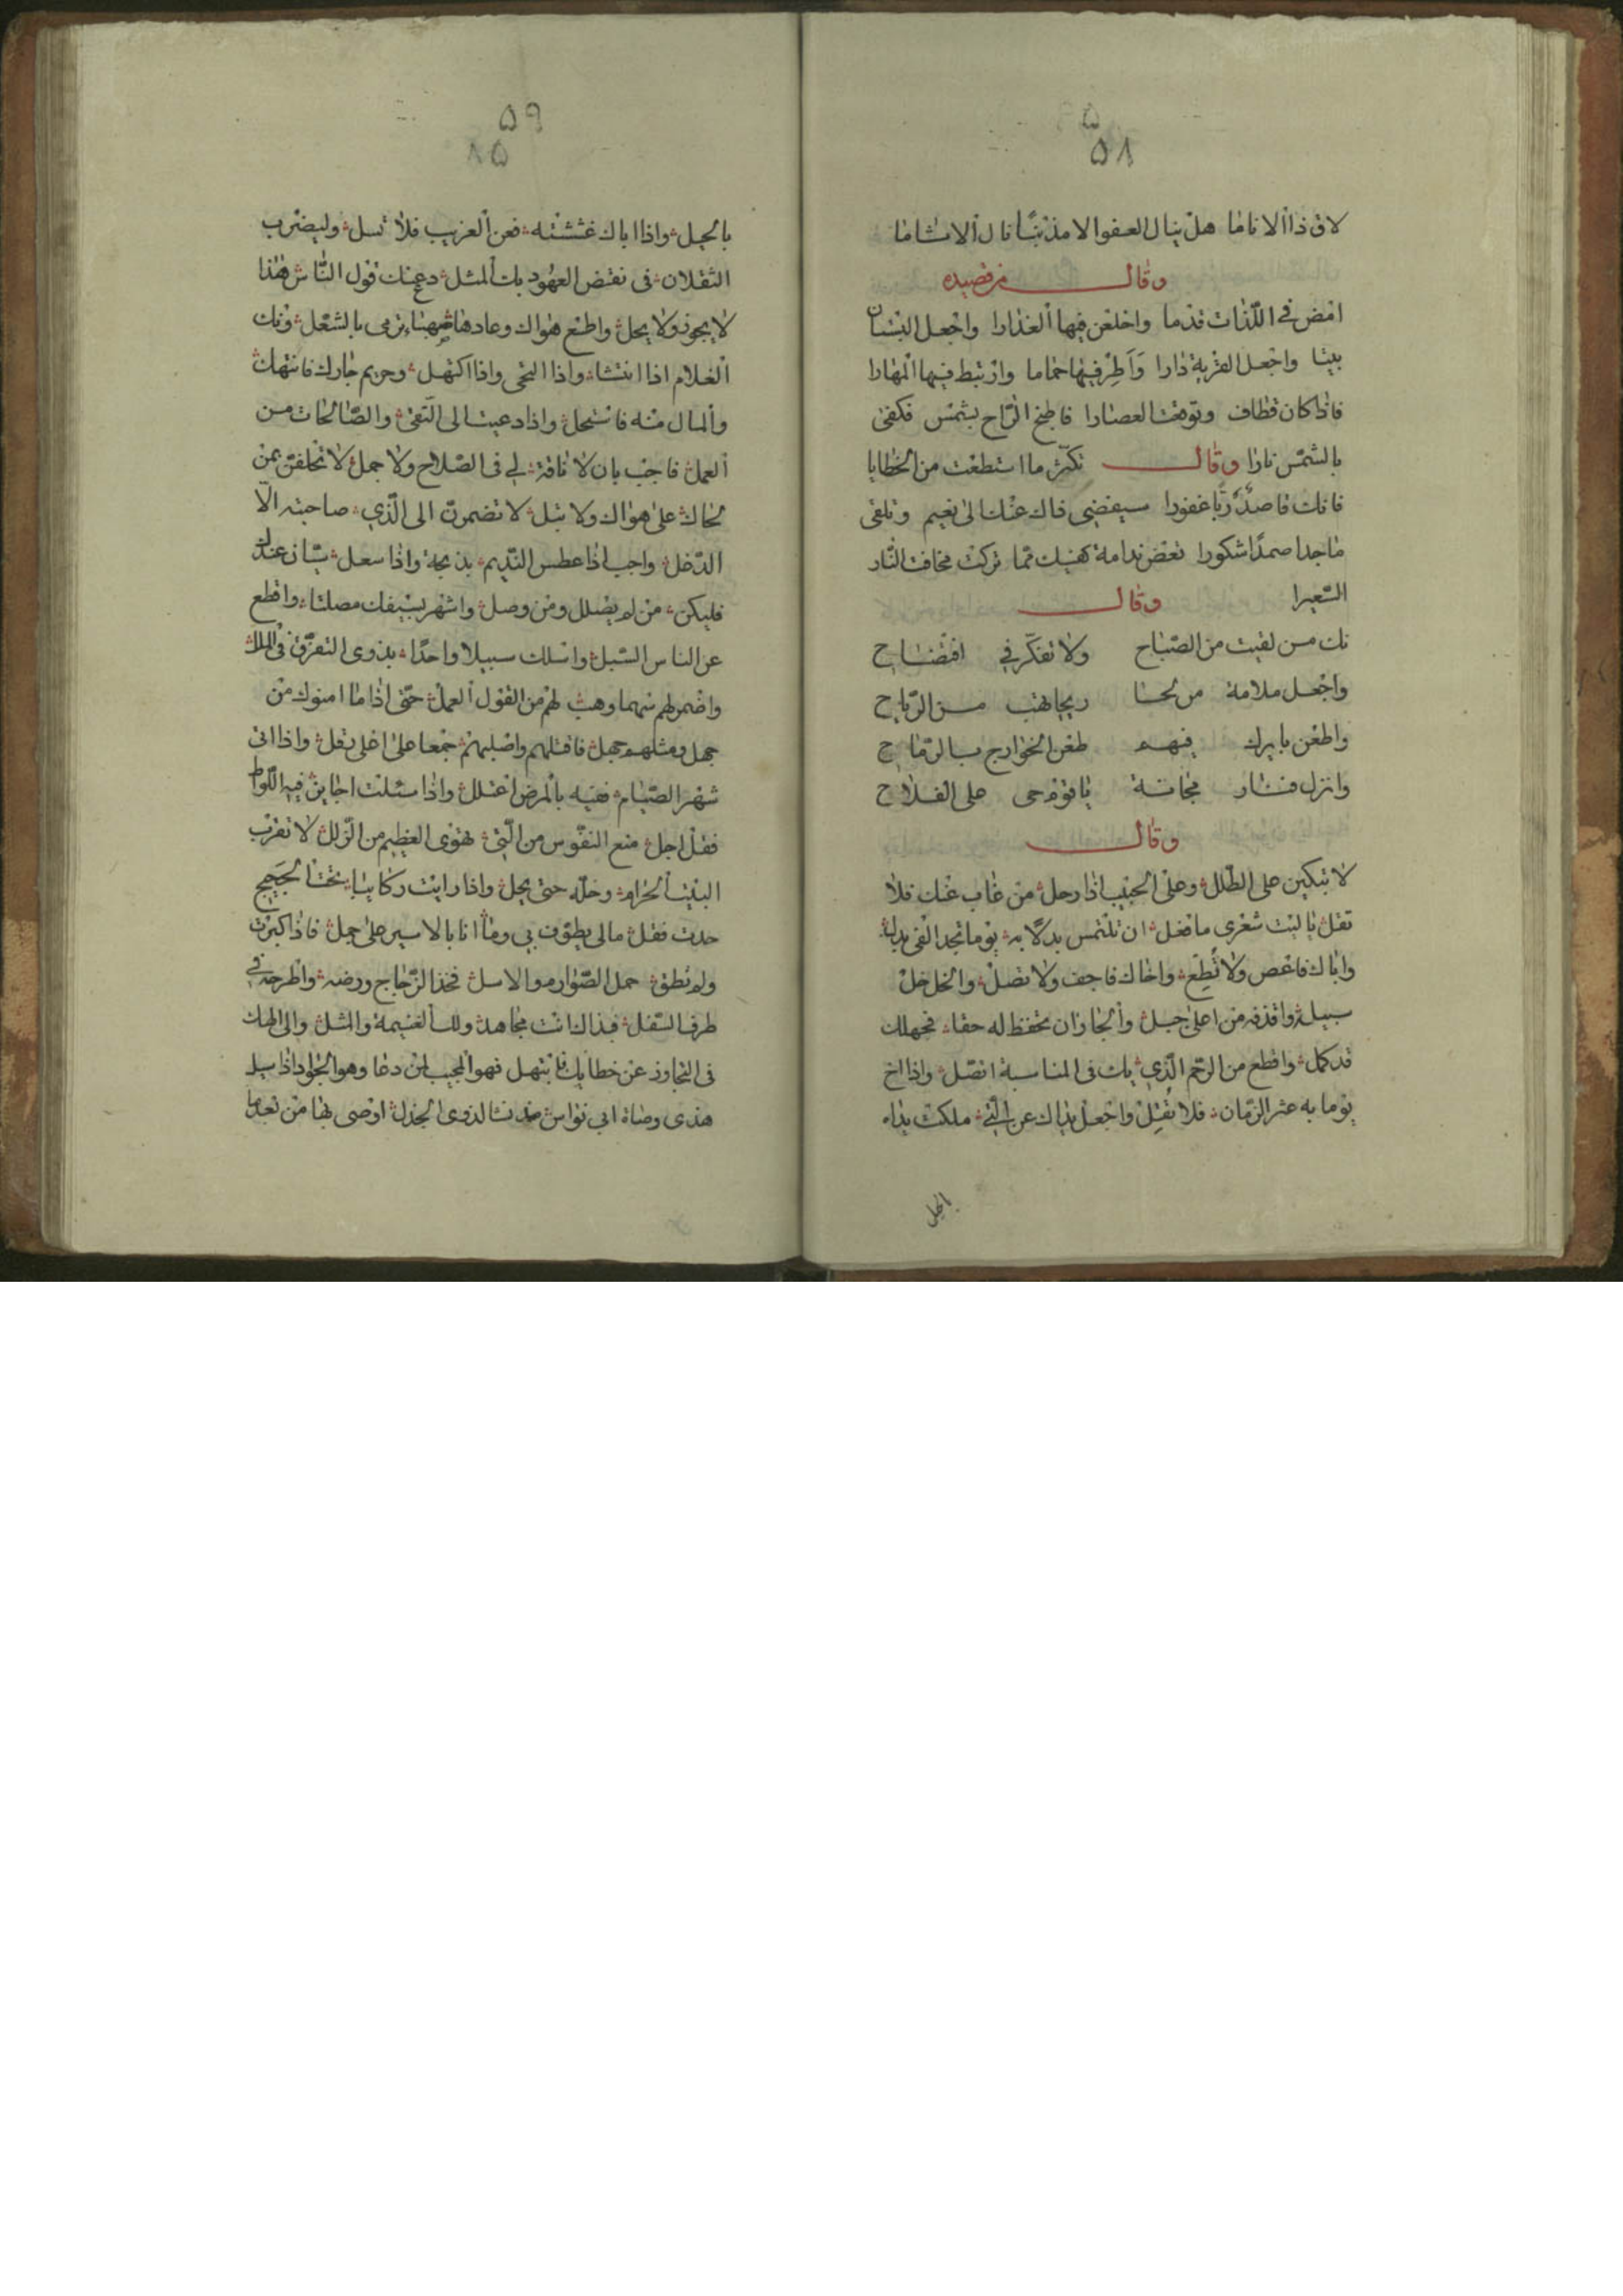 ۵۸
لاق ذا الاناما هل ينال العفو الا مذنبا نال الاثاما
وقال من قصيده
امض في اللذات قدما واخلعن فيها العذارا واجعل البستان
بيتا واجعل القرية دارا وأطر فيها حماما وارتبط فيها المهارا
فاذا كان قطاف وتوقعت العصارا فاطبخ الراح بشمس فكفى
بالشمس نارا وقال تكثر ما استطعت من الخطايا
فانك قاصد ربا غفورا سيفضي ذاك عنك الى نعيم وتلقى
ماجدا صمدا شكورا تعض ندامة كفيك مما تركت مخافة النار
السعيرا وقال
نك من لقيت من الصباح ولا تفكر في افتضاح
واجعل ملامة من لحا ريحا تهب من الرياح
واطعن بايرك فيهم طعن الخوارج بالرماح
وانزل فثار مجانة يا قوم حى على الفلاح
وقال
لا تبكين على الطلل وعلى الحبيب اذا رحل من غاب عنك فلا
تقل يا ليت شعرى ما فعل ان تلتمس بدلا به يوما تجد الفى بدل
واباك فاعص ولا تطع واخاك فاجف ولا تصل والخل خل
سبيله واقذفه من اعلى جبل والجار ان تحفظ له حقا فجهلك
قد كمل واقطع من الرحم الذي بك في المناسبة اتصل واذا اخ
يوما به عثر الزمان فلا تقل واجعل يداك عن التي ملكت يداه
الحيل
۵۹
بالحيل واذا اباك غششته فعن الغريب فلا تسل وليضرب
الثقلان فى نقض العهود بك المثل دع عنك قول الناس هذا
لا يجوز ولا يحل واطع هواك وعادها ترمى بالشعل ونك
الغلام اذا انتشا واذا التحى واذا اكتهل وحريم جارك فانتهك
والمال منه فاستحل واذا دعيت الى التقى والصالحات من
العمل فاجب بان لا ناقة لي فى الصلاح ولا جمل لا تحلفن بمن
لحاك على هواك ولا تبل لا تضمرن الى الذي صاحبته الا
الدغل واجب اذا عطس النديم بذبحة واذا سعل سيان عندك
فليكن من لم يضلل ومن وصل واشهر بسيفك مصلتا واقطع
عن الناس السبل واسلك سبيلا واحدا بذوى التفرق فى الملل
واضمر لهم سما وهب لهم من القول العمل حتى اذا ما امنوك من
جهل ومثلهم جهل فاقتلهم واصلبهم جمعا على اعلى تعل واذا اتى
شهر الصيام ففيه بالمرض اعتلل واذا سئلت اجاين فيه اللواط
فقل اجل منع النفوس من التي تهوى العظيم من الزلل لا تقرب
البيت الحرام وخله حتى يحل واذا رايت ركايبا تحت الحجيج
حدت فقل مالى يطوف بي وما انا بالاسير على جمل فاذا كبرت
ولم تطق حمل الصوارم والاسل فخذ الزجاج ورضه واطرحه في
طرف السفل فبذاك انت مجاهد ولك الغنيمة والمثل والى الهك
فى التجاوز عن خطايك فابتهل فهو المجيب لمن دعا وهو الجواد اذا سيل
هذى وصاة ابي نواس لذوى الجذل اوصى بها من بعد ما